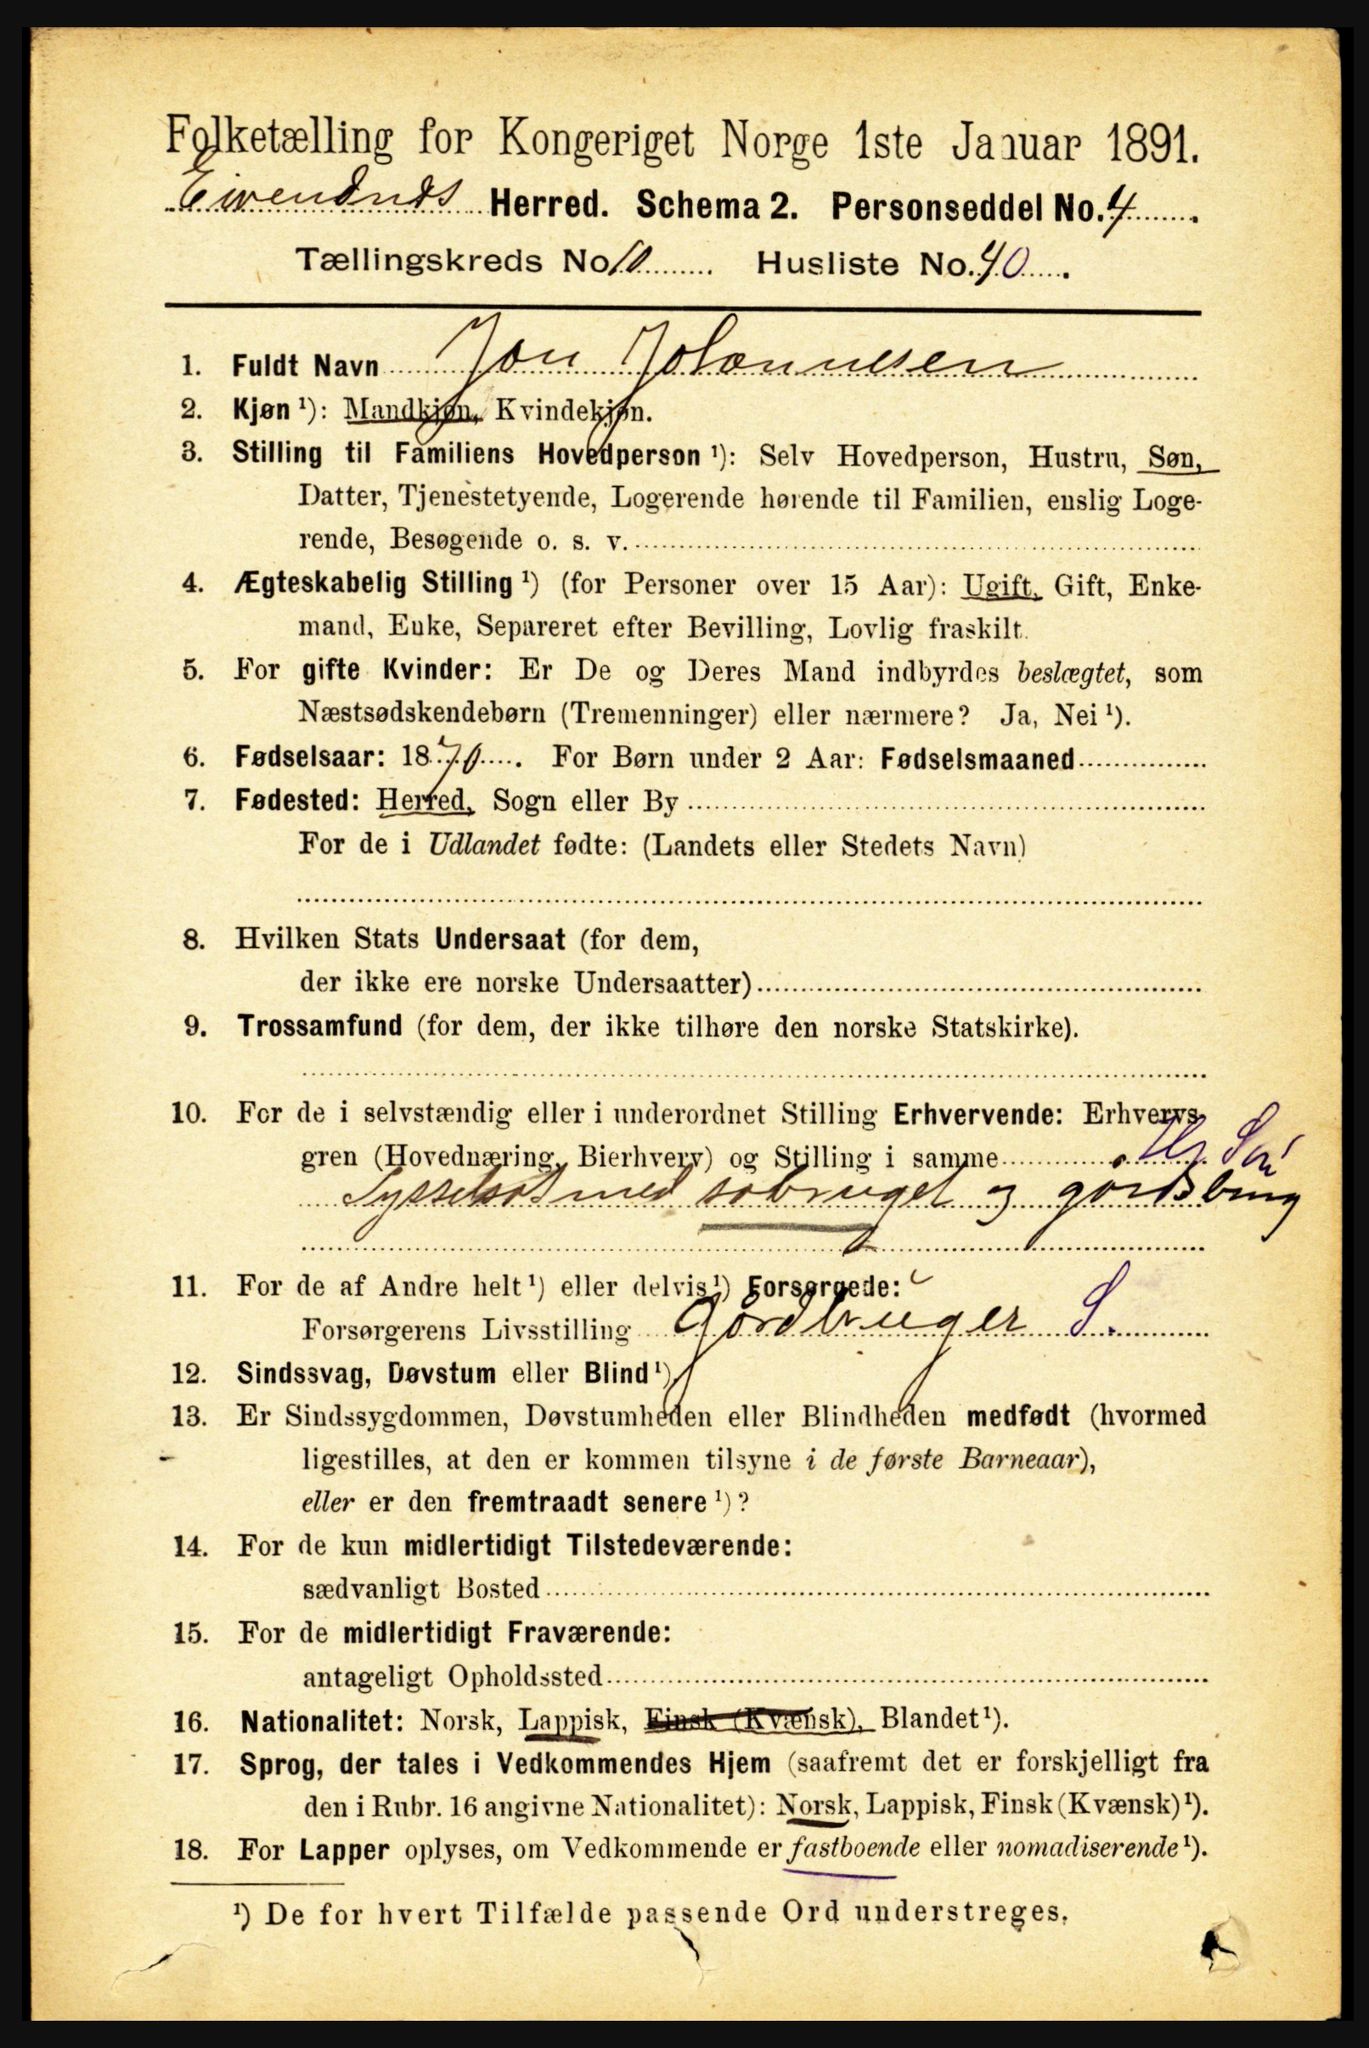 Folketælling for Kongeriget Norge 1ste Januar 1891.
Herred. Schema 2. Personseddel No. 4
Tællingskreds No 10 Husliste No. 40.
1. Fuldt Navn Jon Johannesen
2. Kjøn ¹): Mandkjøn, Kvindekjøn.
3. Stilling til Familiens Hovedperson ¹): Selv Hovedperson, Hustru, Søn,
Datter, Tjenestetyende, Logerende hørende til Familien, enslig Loge-
rende, Besøgende o. s. v.
4. Ægteskabelig Stilling ¹) (for Personer over 15 Aar): Ugift, Gift, Enke-
mand, Enke, Separeret efter Bevilling, Lovlig fraskilt.
5. For gifte Kvinder: Er De og Deres Mand indbyrdes beslægtet, som
Næstsødskendebørn (Tremenninger) eller nærmere? Ja, Nei ¹).
6. Fødselsaar: 1870. For Børn under 2 Aar: Fødselsmaaned
7. Fødested: Herred, Sogn eller By
For de i Udlandet fødte: (Landets eller Stedets Navn)
8. Hvilken Stats Undersaat (for dem,
der ikke ere norske Undersaatter)
9. Trossamfund (for dem, der ikke tilhøre den norske Statskirke).
10. For de i selvstændig eller i underordnet Stilling Erhvervende: Erhvervs-
gren (Hovednæring, Bierhverv) og Stilling i samme
Sysselsat med sobruget og gordsbrug
11. For de af Andre helt ¹) eller delvis ¹) Forsørgede:
Forsørgerens Livsstilling Gordbruger S.
12. Sindssvag, Døvstum eller Blind ¹).
13. Er Sindssygdommen, Døvstumheden eller Blindheden medfødt (hvormed
ligestilles, at den er kommen tilsyne i de første Barneaar),
eller er den fremtraadt senere ¹)?
14. For de kun midlertidigt Tilstedeværende:
sædvanligt Bosted
15. For de midlertidigt Fraværende:
antageligt Opholdssted
16. Nationalitet: Norsk, Lappisk, Finsk (Kvænsk), Blandet ¹).
17. Sprog, der tales i Vedkommendes Hjem (saafremt det er forskjelligt fra
den i Rubr. 16 angivne Nationalitet): Norsk, Lappisk, Finsk (Kvænsk) ¹).
18. For Lapper oplyses, om Vedkommende er fastboende eller nomadiserende ¹).
¹) De for hvert Tilfælde passende Ord understreges.